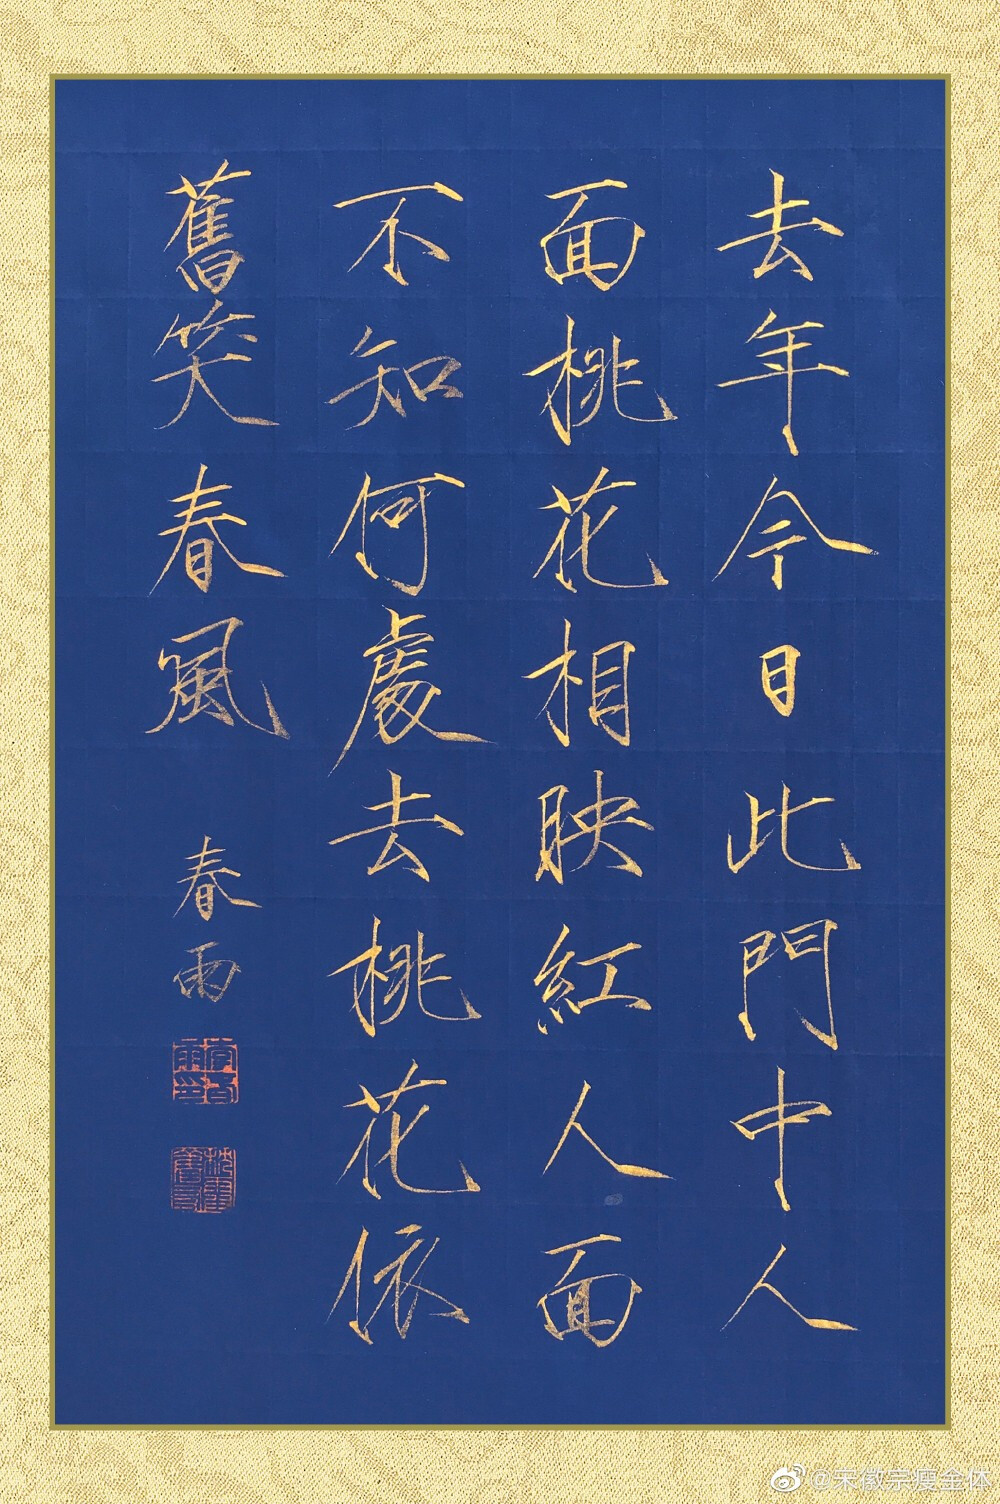 去年今日此門中人
面桃花相映紅人面
不知何處去桃花依
舊笑春風
春雨
@宋徽宗瘦金体